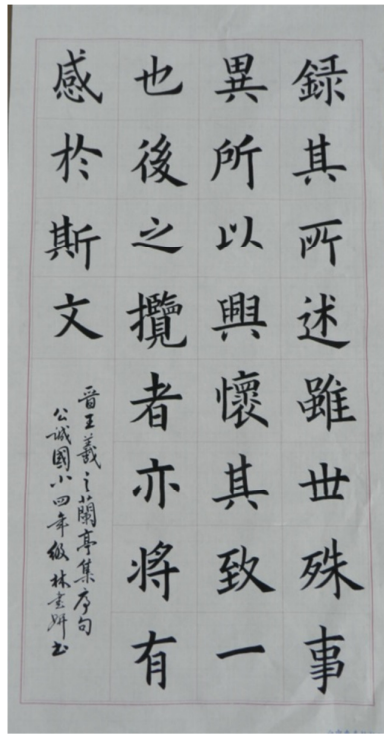 録其所述雖世殊事
異所以興懷其致一
也後之攬者亦将有
感於斯文
晉王羲之蘭亭集序句
公誠國小四年級林書妍书